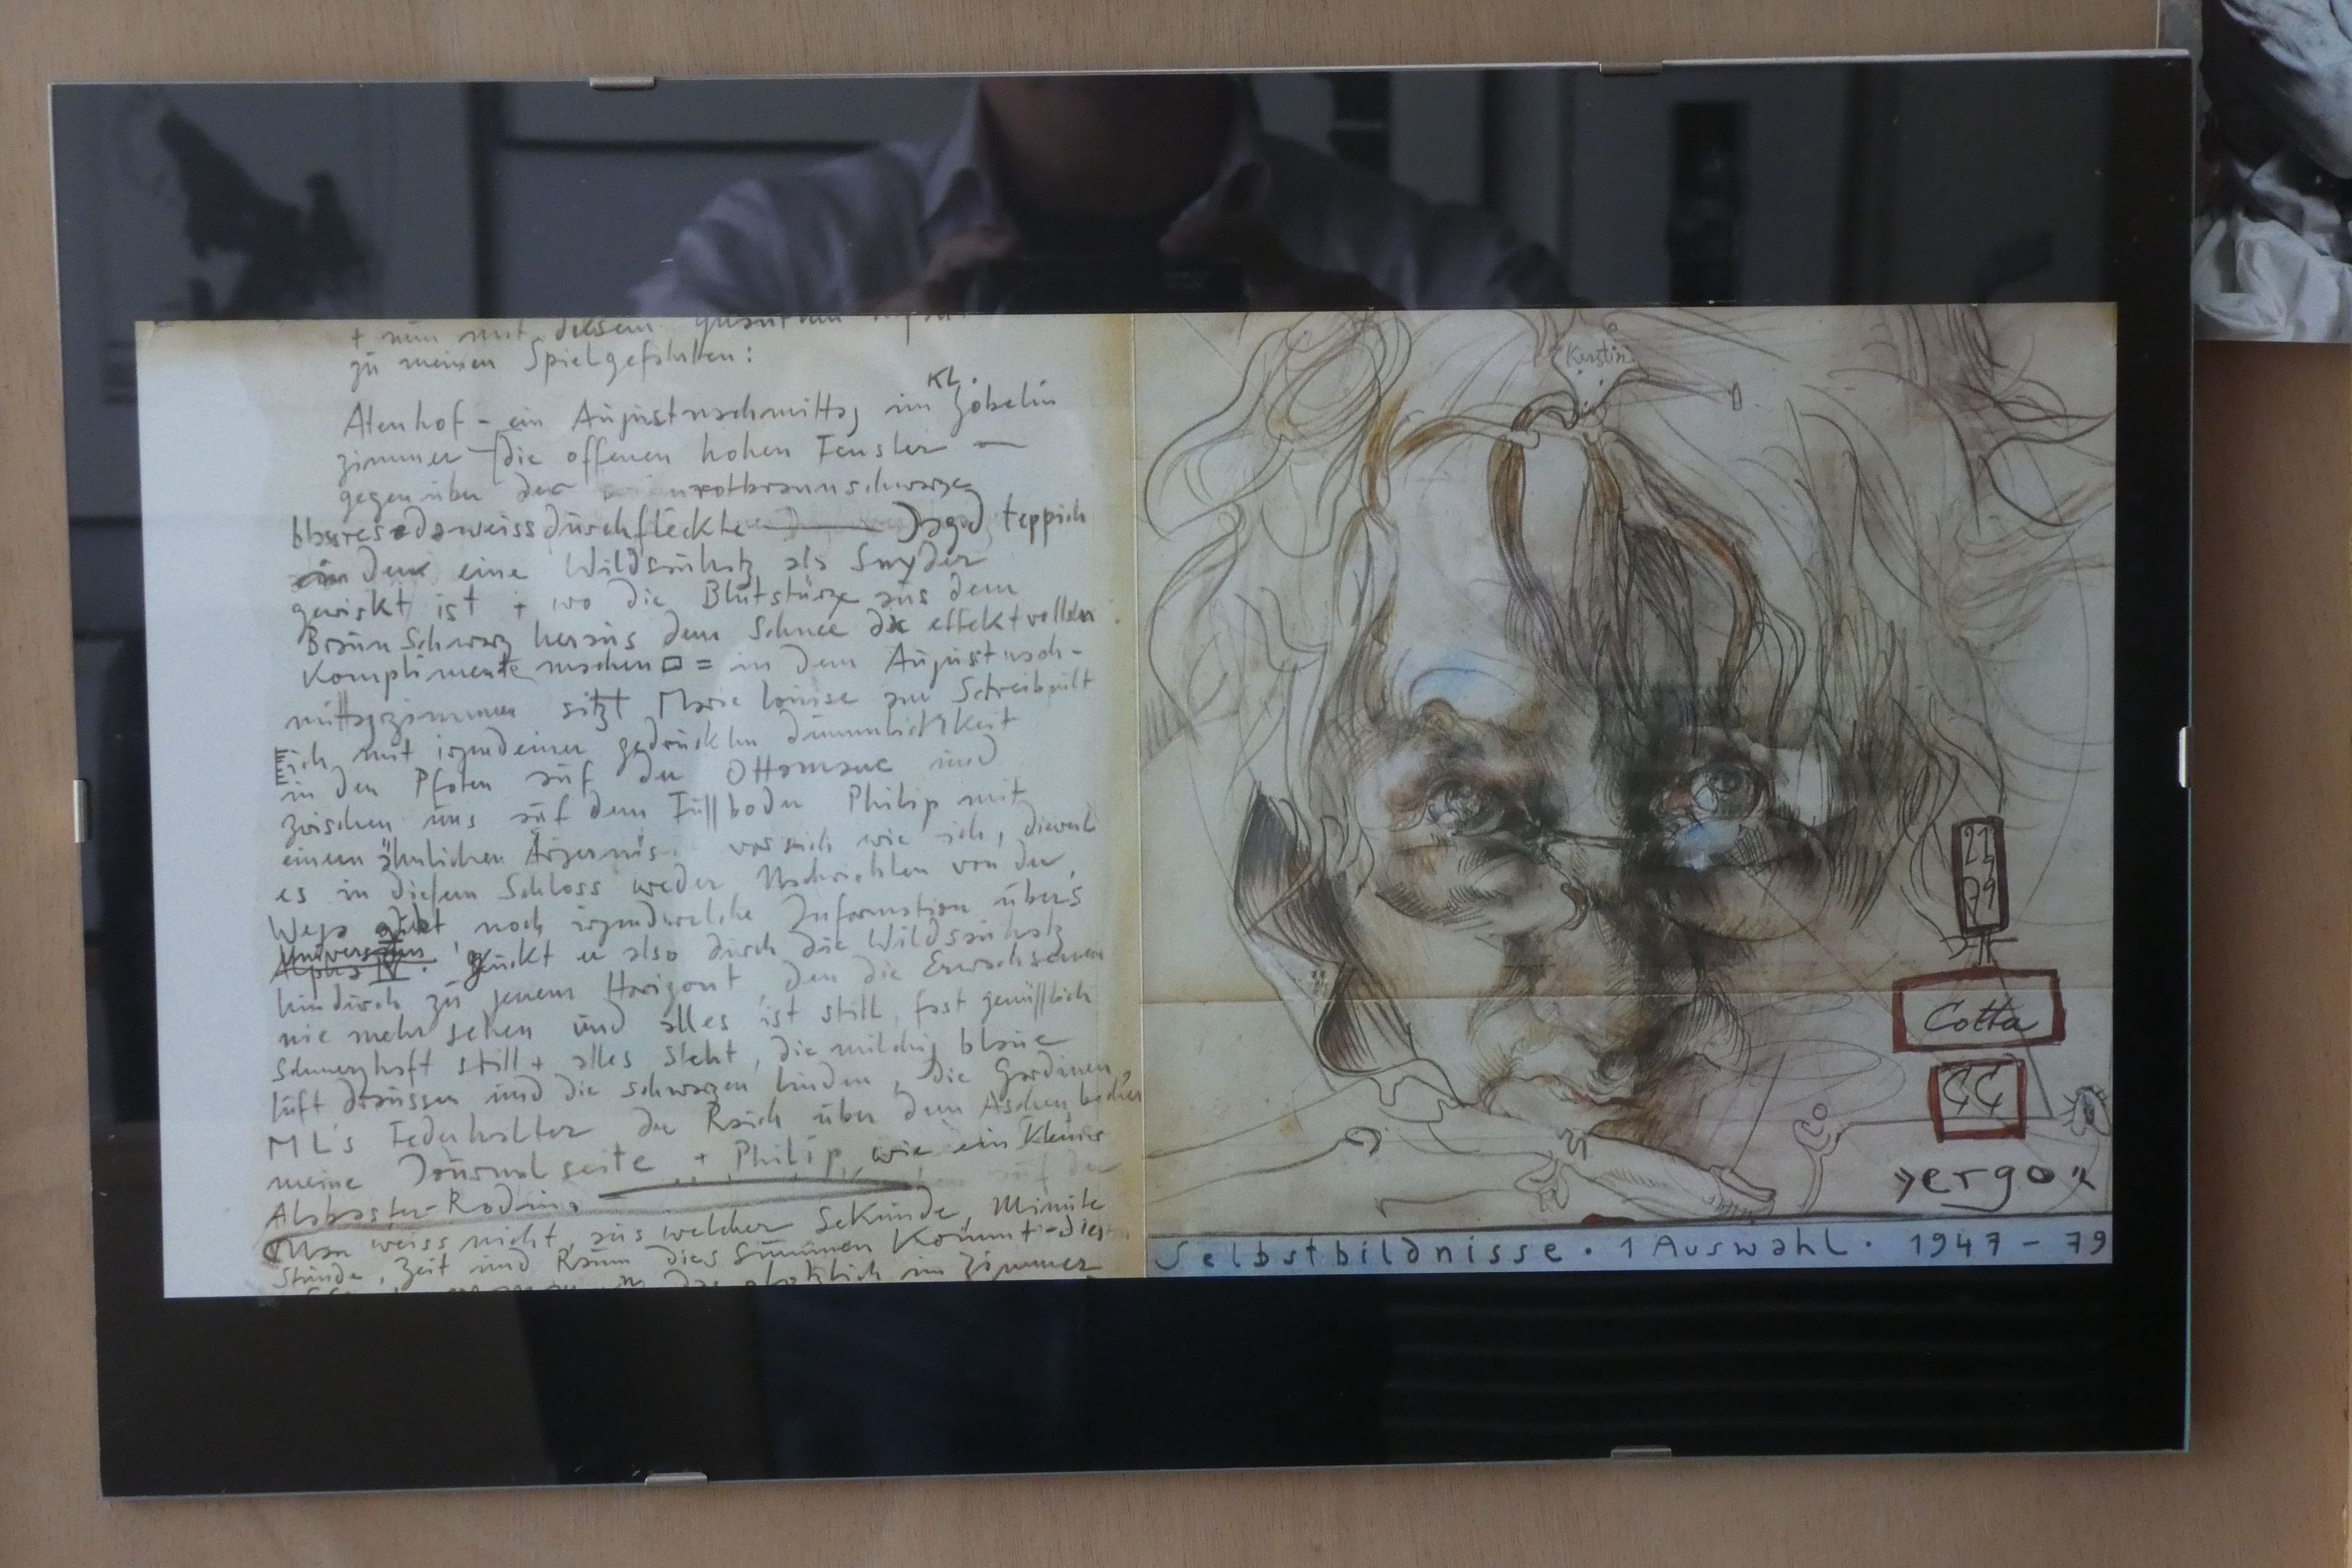 + nun mit diesem
zu meinen Spielgefährten:
KL.
Atenhof - ein Augustnachmittag im Gobelin
zimmer - die offenen hohen Fenster —
gegenüber der rotbraunschwarze
durchfleckte Jagd teppich
dem eine Wildsauhatz als Snyder
gewirkt ist + wo die Blutstürze aus dem
Braun Schwarz heraus dem Schnee die effektvollen
Komplimente machen = in dem Augustnach-
mittagzimmer sitzt Marie Louise am Schreibpult
ich mit irgendeiner gedruckten Dümmlichkeit
in den Pfoten auf der Ottomane und
zwischen uns auf dem Fußboden Philip mit
einem ähnlichen Ärgernis vor sich wie ich, dieweil
es in diesem Schloss weder Nachrichten von der
Wega gibt noch irgendwelche Information übers
Universum
Alpha IV. guckt er also durch die Wildsauhatz
hindurch zu jenem Horizont, den die Erwachsenen
nie mehr sehen und alles ist still, fast genüßlich
schmerzhaft still + alles steht, die milchig blaue
Luft draussen und die schwarzen Linden, die Gardinen,
ML's Federhalter der Rauch über dem Aschenbecher
meine Journalseite + Philip, wie ein kleiner
Alabaster-Rodin.
Man weiss nicht, aus welcher Sekunde, Minute
Stunde, Zeit und Raum dies Summen kommt -
plötzlich im Zimmer
Kerstin
21
79
Cotta
»ergo«
Selbstbildnisse · 1 Auswahl · 1947 - 79